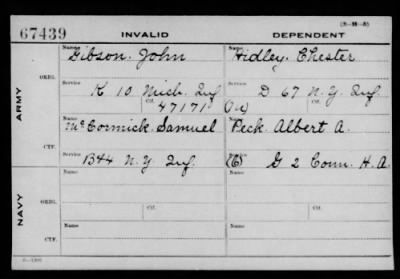 67439 INVALID DEPENDENT
Name Gibson. John Name Hidley. Chester
ORIG.
Service K 10 Mich. Inf. Service D 67 N.Y. Inf.
Ctf. 47171
ARMY
Name McCormick. Samuel Name Peck Albert A.
CTF.
Service B44 N.Y. Inf. (C) G 2 Conn. H.A.
Name Name
ORIG.
Ctf. Ctf.
NAVY
Name Name
CTF.